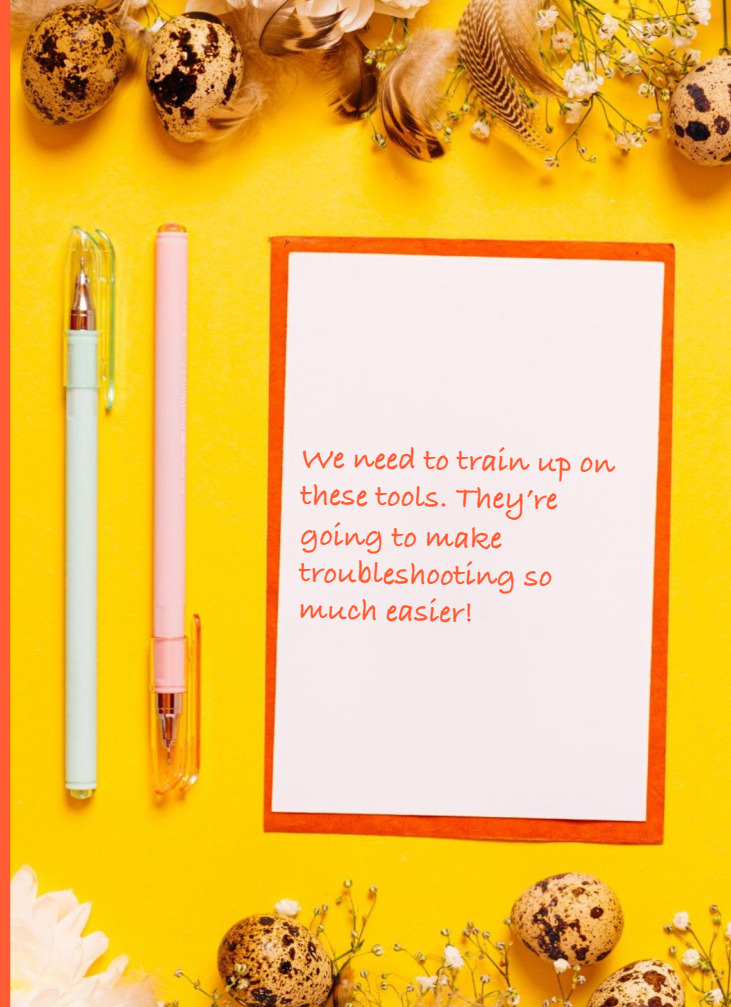 We need to train up on
these tools. They’re
going to make
troubleshooting so
much easier!